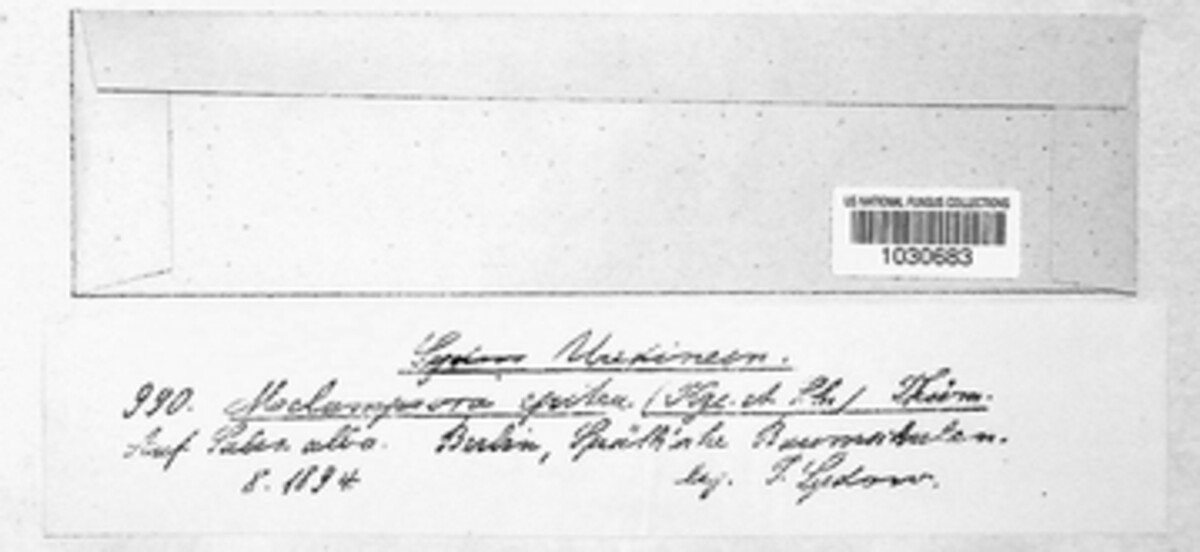 US NATIONAL FUNGUS COLLECTIONS
1030683
Sydow Uredineen.
990. Melampsora epitea (Kze. et Sch.) Thüm.
Auf Salix alba. Berlin, Späth'sche Baumschulen.
8. 1894 leg. P. Sydow.